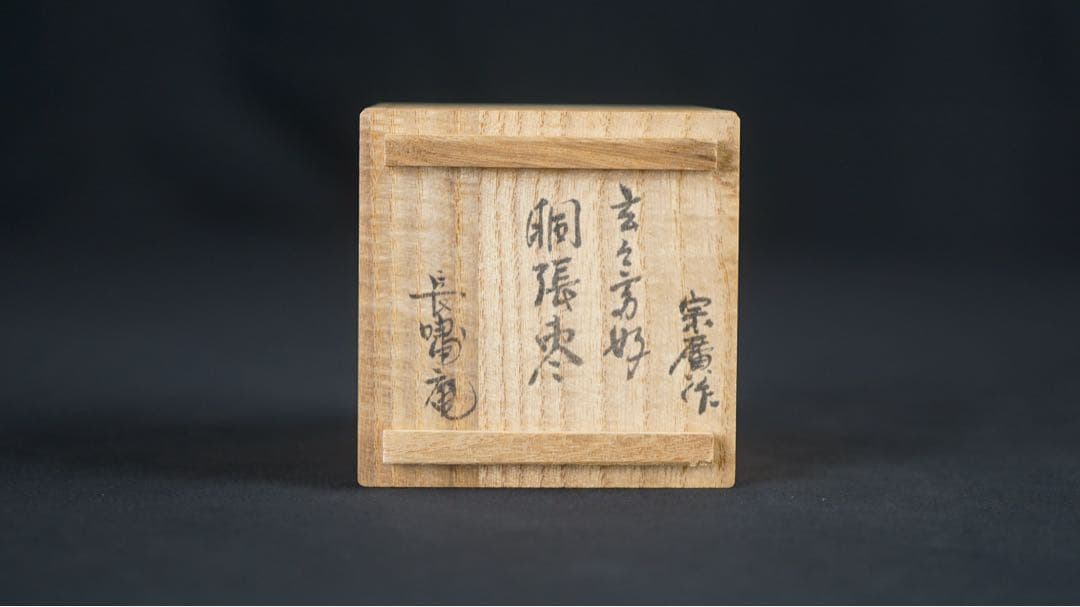 宗廣作
玄々斎好
胴張棗
長嘯庵